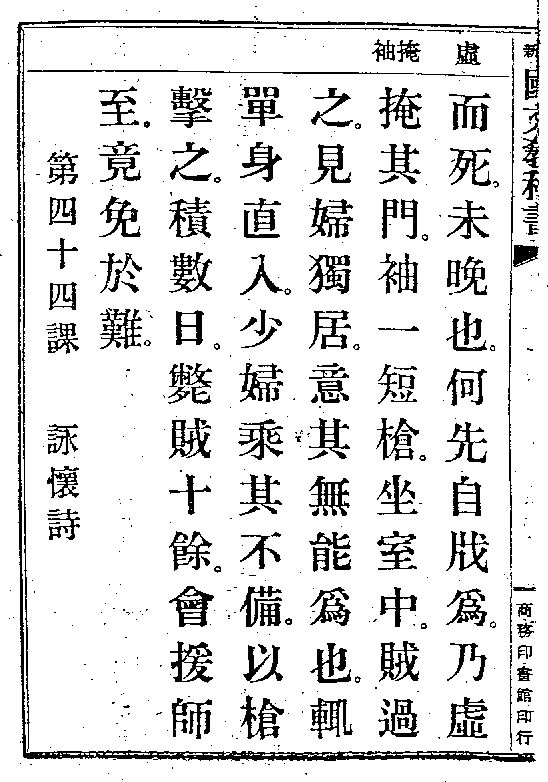 新國文教科書
商務印書館印行
虛
掩
袖
而死。未晚也。何先自戕爲。乃虛
掩其門。袖一短槍。坐室中。賊過
之。見婦獨居。意其無能爲也。輒
單身直入。少婦乘其不備。以槍
擊之。積數日。斃賊十餘。會援師
至。竟免於難。
第四十四課 詠懷詩